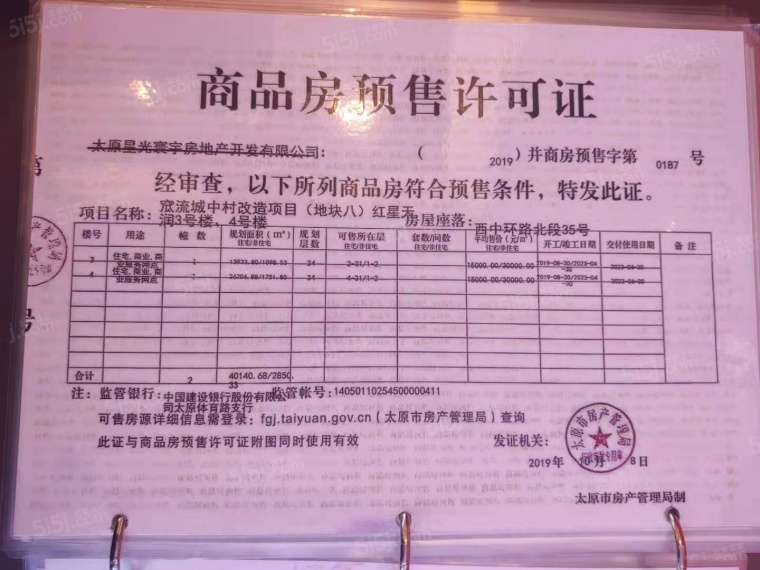 商品房预售许可证
太原星光寰宇房地产开发有限公司： （ 2019）并商房预售字第 0187 号
经审查，以下所列商品房符合预售条件，特发此证。
项目名称：寇流城中村改造项目（地块八）红星天润3号楼、4号楼 房屋座落：西中环路北段35号
楼号 用途 幢数 规划面积（m²）住宅/非住宅 规划层数 可售所在层 住宅/非住宅 套数/间数 住宅/非住宅 平均售价（元/m²）住宅/非住宅 开工/竣工日期 交付使用日期 备注
3 住宅, 商业, 商业服务网点 1 34 2-31/1-2 15000.00/30000.00 2019-08-30/2023-04-30 2023-06-30
4 住宅, 商业, 商业服务网点 1 34 15000.00/30000.00 2019-08-30/2023-04-30 2023-06-30
合计 2 40140.68/2850.33
注：监管银行：中国建设银行股份有限公司太原体育路支行 监管帐号：14050110254500000411
可售房源详细信息需登录：fgj.taiyuan.gov.cn（太原市房产管理局）查询
此证与商品房预售许可证附图同时使用有效 发证机关：
太原市房产管理局
2019年 10月 8日
太原市房产管理局制
第
号
5i5j